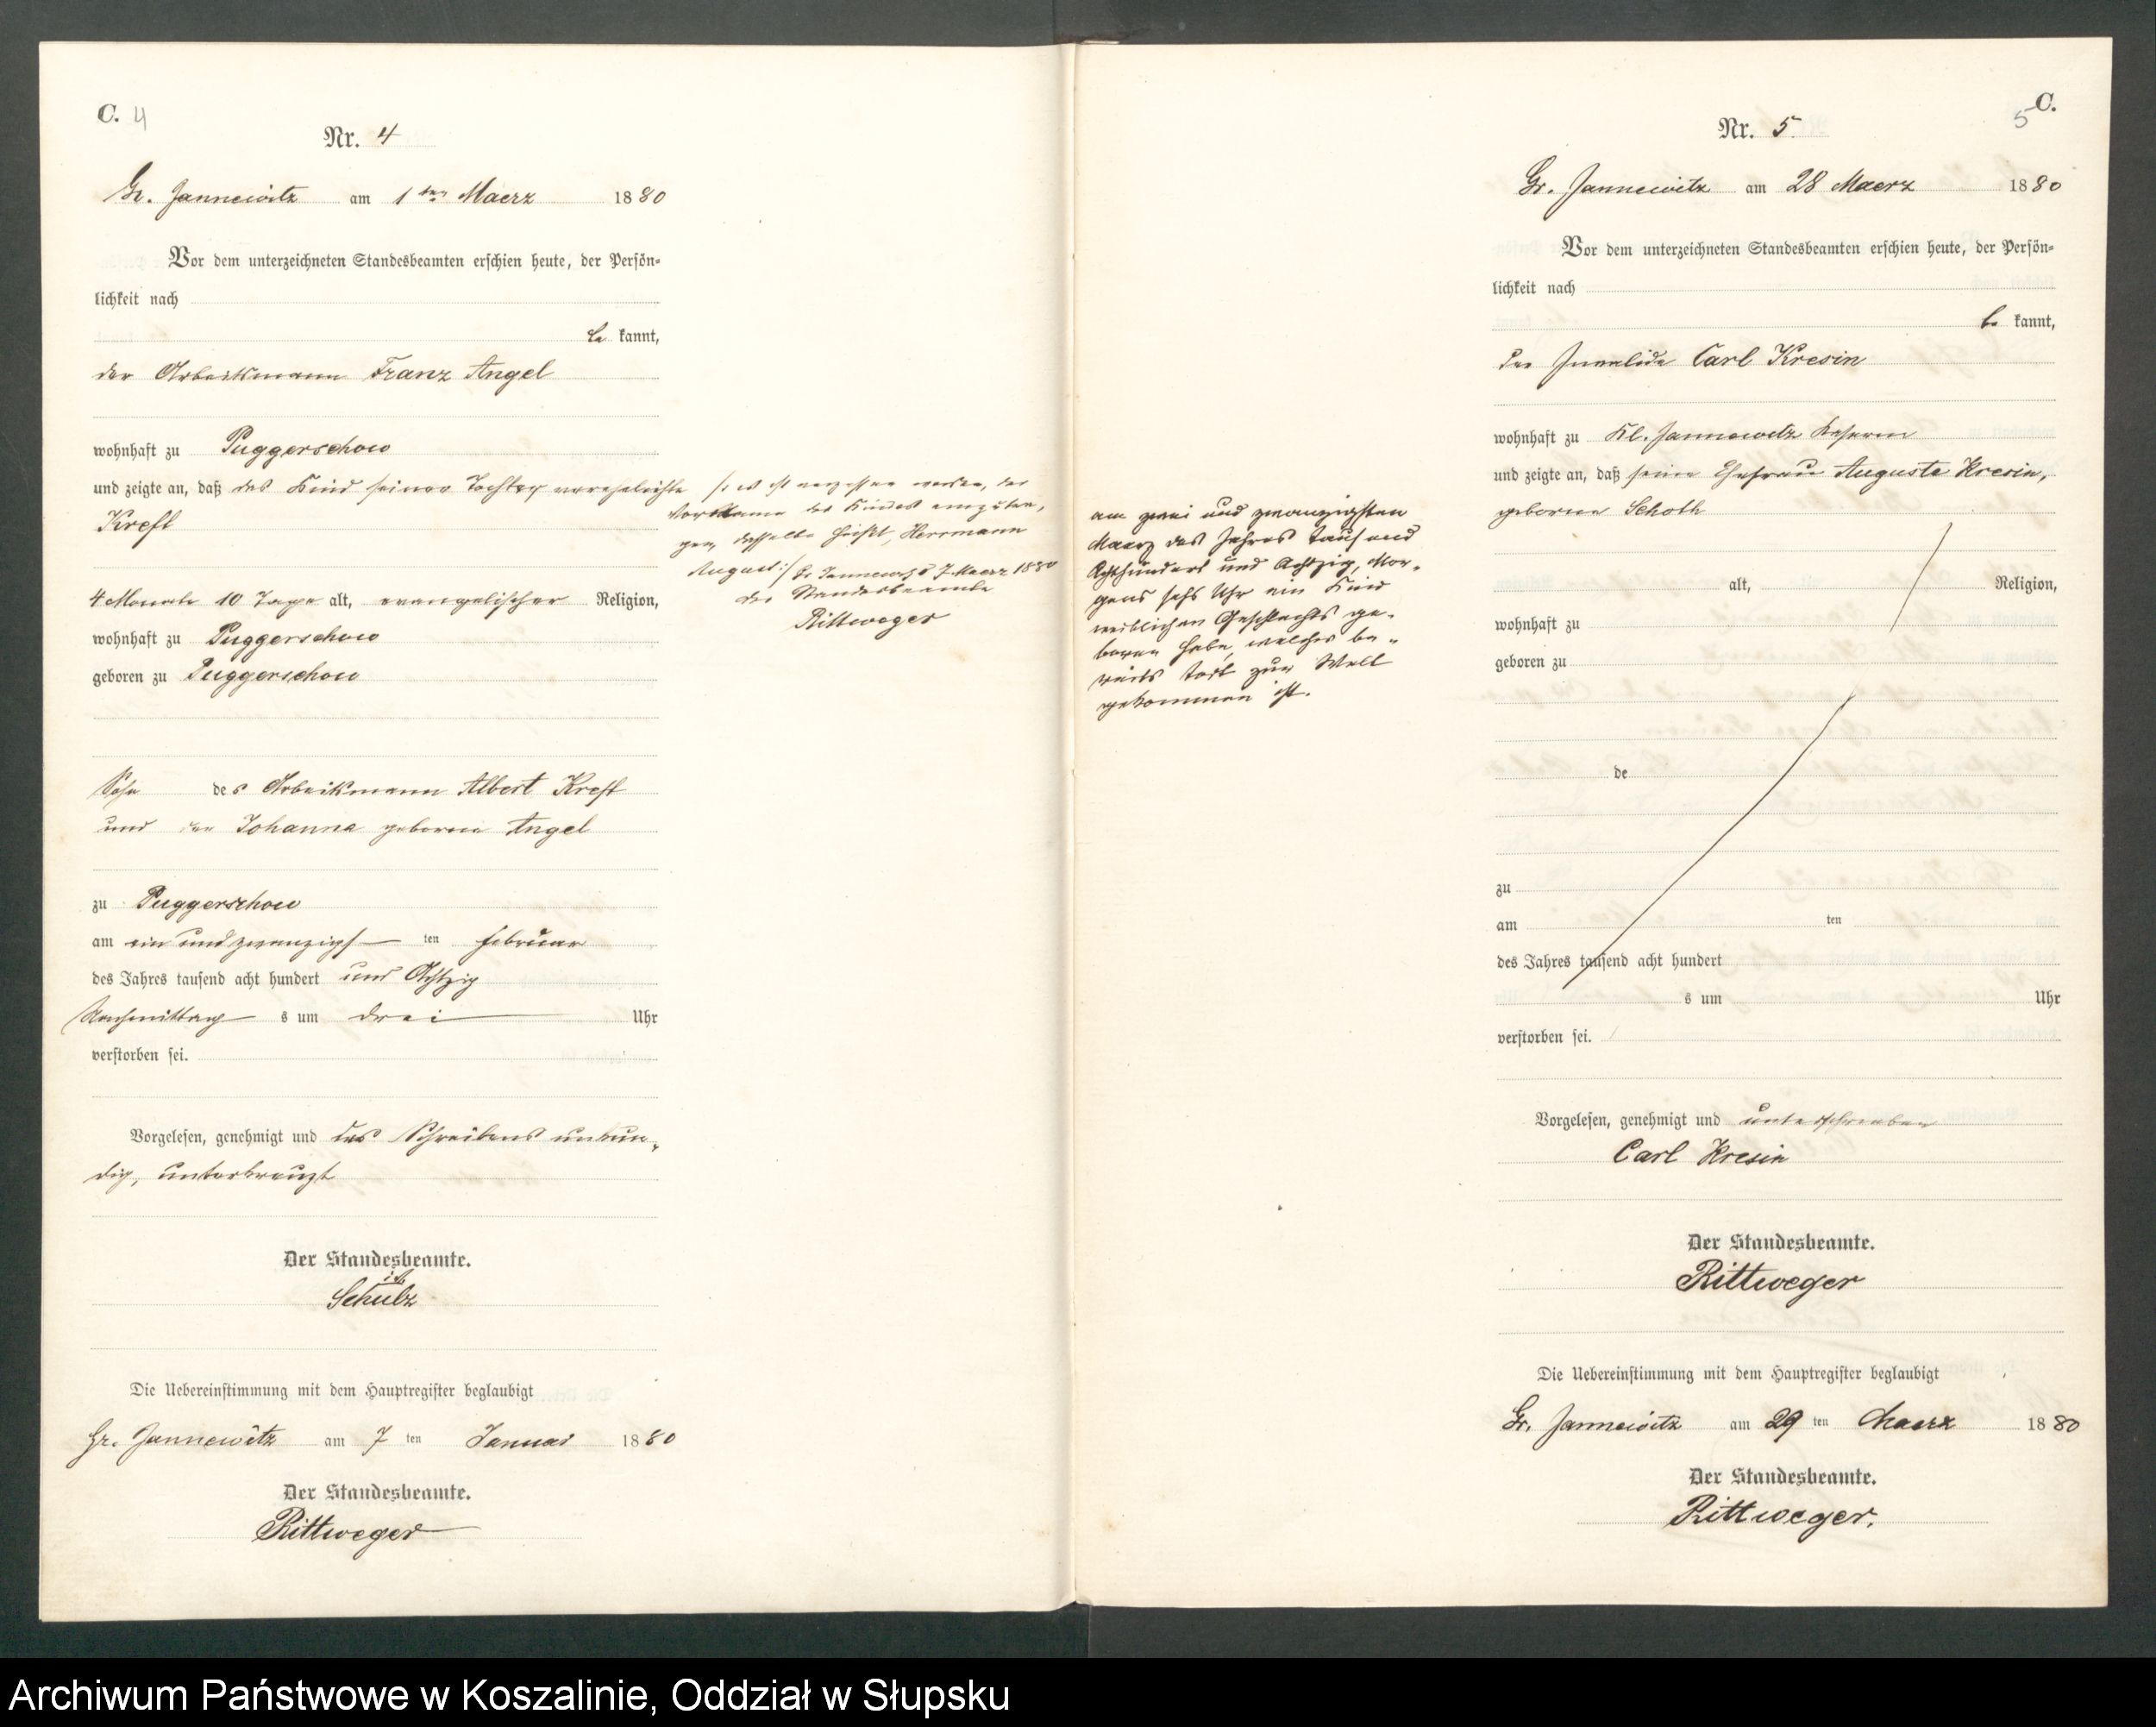 C. 4
Nr. 4
Gr. Jannewitz am 1ten Maerz 1880
Vor dem unterzeichneten Standesbeamten erschien heute, der Persön-
lichkeit nach
be kannt,
der Arbeitsmann Franz Angel
wohnhaft zu Puggerschow
und zeigte an, daß das Kind seiner Tochter verehelichte
Kreft
4 Monate 10 Tage alt, evangelischer Religion,
wohnhaft zu Puggerschow
geboren zu Puggerschow
Sohn des Arbeitsmann Albert Kreft
und der Johanna geborene Angel
zu Puggerschow
am ein und zwanzigst ten Februar
des Jahres tausend acht hundert und Achtzig
Nachmittag s um drei Uhr
verstorben sei.
Vorgelesen, genehmigt und des Schreibens unkun-
dig, unterkreuzt
Der Standesbeamte.
Schulz
Die Uebereinstimmung mit dem Hauptregister beglaubigt
Gr. Jannewitz am 7 ten Januar 1880
Der Standesbeamte.
Rittweger
/: es ist vergessen worden, der
Vorname des Kindes einzutra-
gen, dasselbe heißt, Herrmann
August :/ Gr. Jannewitz d 7 Maerz 1880
der Standesbeamte
Rittweger
5 C.
Nr. 5
Gr. Jannewitz am 28 Maerz 1880
Vor dem unterzeichneten Standesbeamten erschien heute, der Persön-
lichkeit nach
be kannt,
der Invalide Carl Kresin
wohnhaft zu Kl. Jannewitz
und zeigte an, daß seine Ehefrau Auguste Kresin,
geborene Schoth
alt, Religion,
wohnhaft zu
geboren zu
de
zu
am ten
des Jahres tausend acht hundert
s um Uhr
verstorben sei.
am zwei und zwanzigsten
Maerz des Jahres tausend
Achthundert und Achtzig, Mor-
gens sechs Uhr ein Kind
weiblichen Geschlechts ge-
boren habe, welches be-
reits todt zur Welt
gekommen ist.
Vorgelesen, genehmigt und unterschrieben
Carl Kresin
Der Standesbeamte.
Rittweger
Die Uebereinstimmung mit dem Hauptregister beglaubigt
Gr. Jannewitz am 29 ten Maerz 1880
Der Standesbeamte.
Rittweger.
Archiwum Państwowe w Koszalinie, Oddział w Słupsku